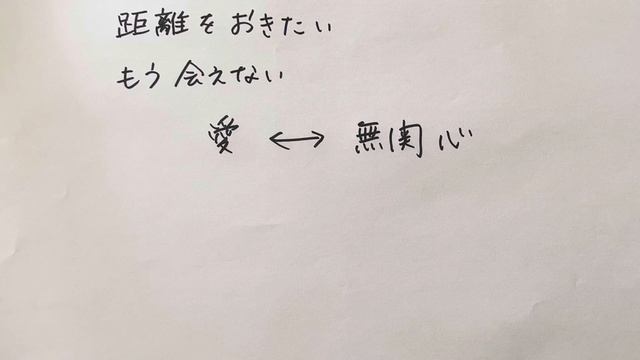 距離をおきたい
もう会えない
愛 ↔ 無関心